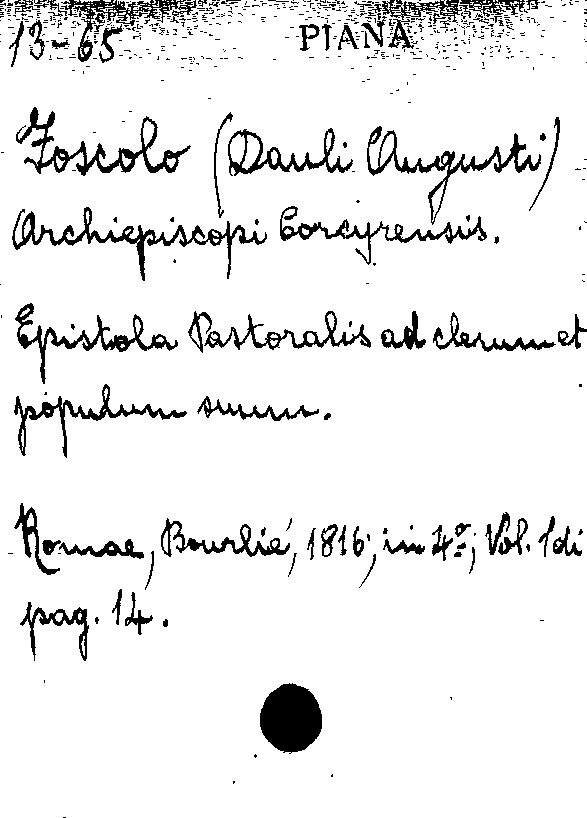 13-65 PIANA
Foscolo (Pauli Augusti)
Archiepiscopi Corcyrensis.
Epistola Pastoralis ad clerum et
populum suum.
Romae, Bourlié, 1816; in 4º; Vol. 1 di
pag. 14.